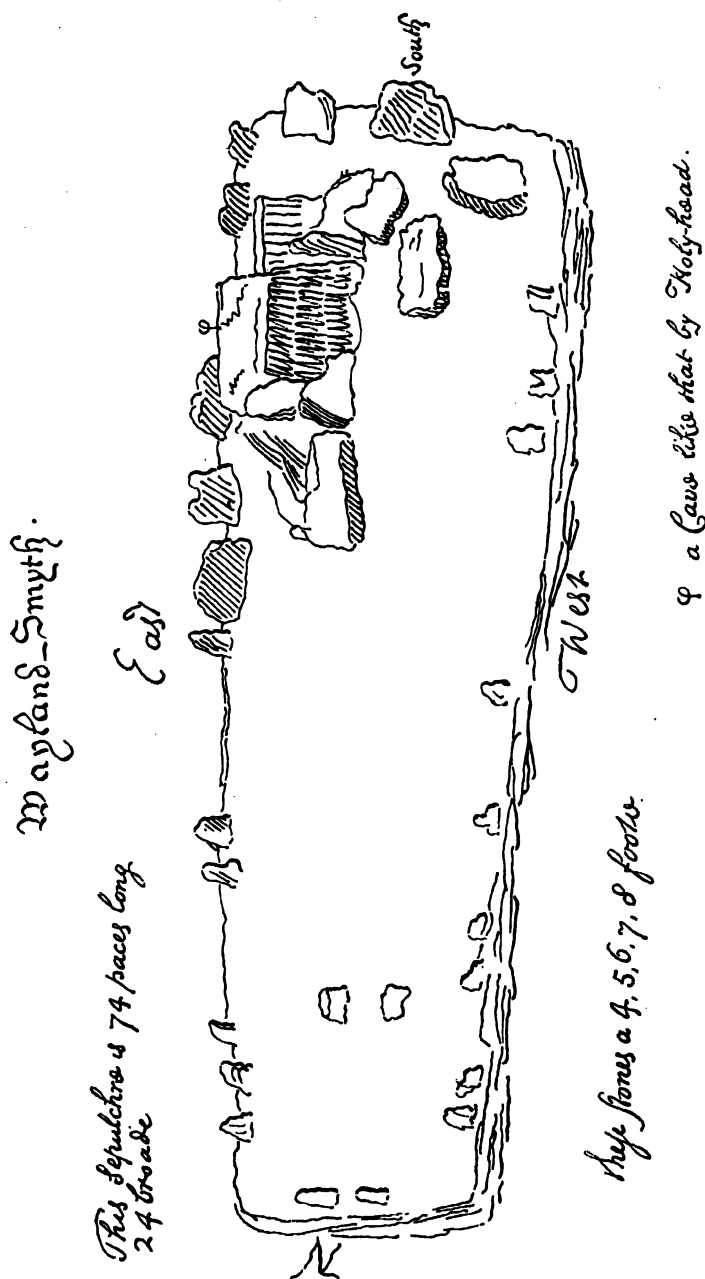 Wayland-Smyth.
This Sepulchre is 74 paces long
24 broade
East
South
West
These stones a 4, 5, 6, 7, 8 foote.
φ a Cave like that by Holy-head.
φ